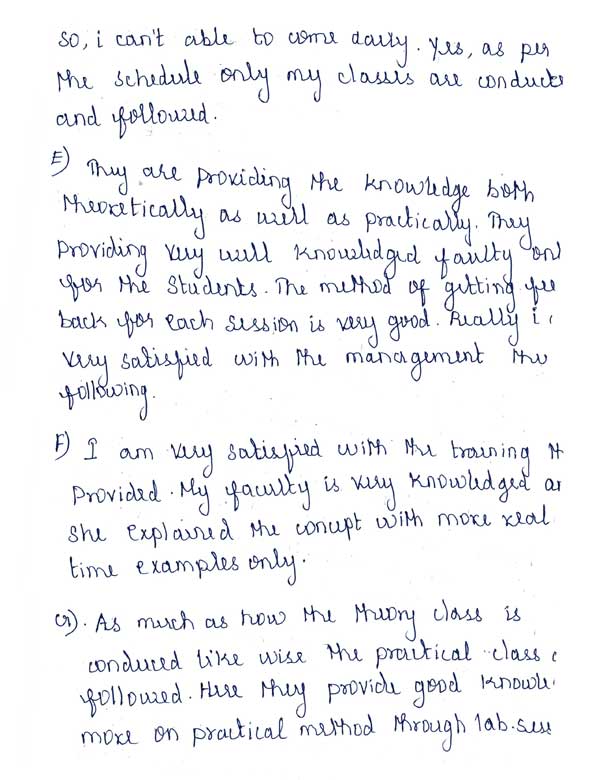 so, i can't able to come daily. Yes, as per
the schedule only my classes are conducte
and followed.
E) They are providing the knowledge both
theoretically as well as practically. They
providing very well knowledged faulty onl
for the students. The method of getting fee
back for each session is very good. Really i
very satisfied with the management the
following.
F) I am very satisfied with the training th
provided. My faculty is very knowledged an
she explained the concept with more real
time examples only.
G). As much as how the theory class is
conduced like wise the practical class
followed. Here they provide good knowle
more on practical method through lab. sess